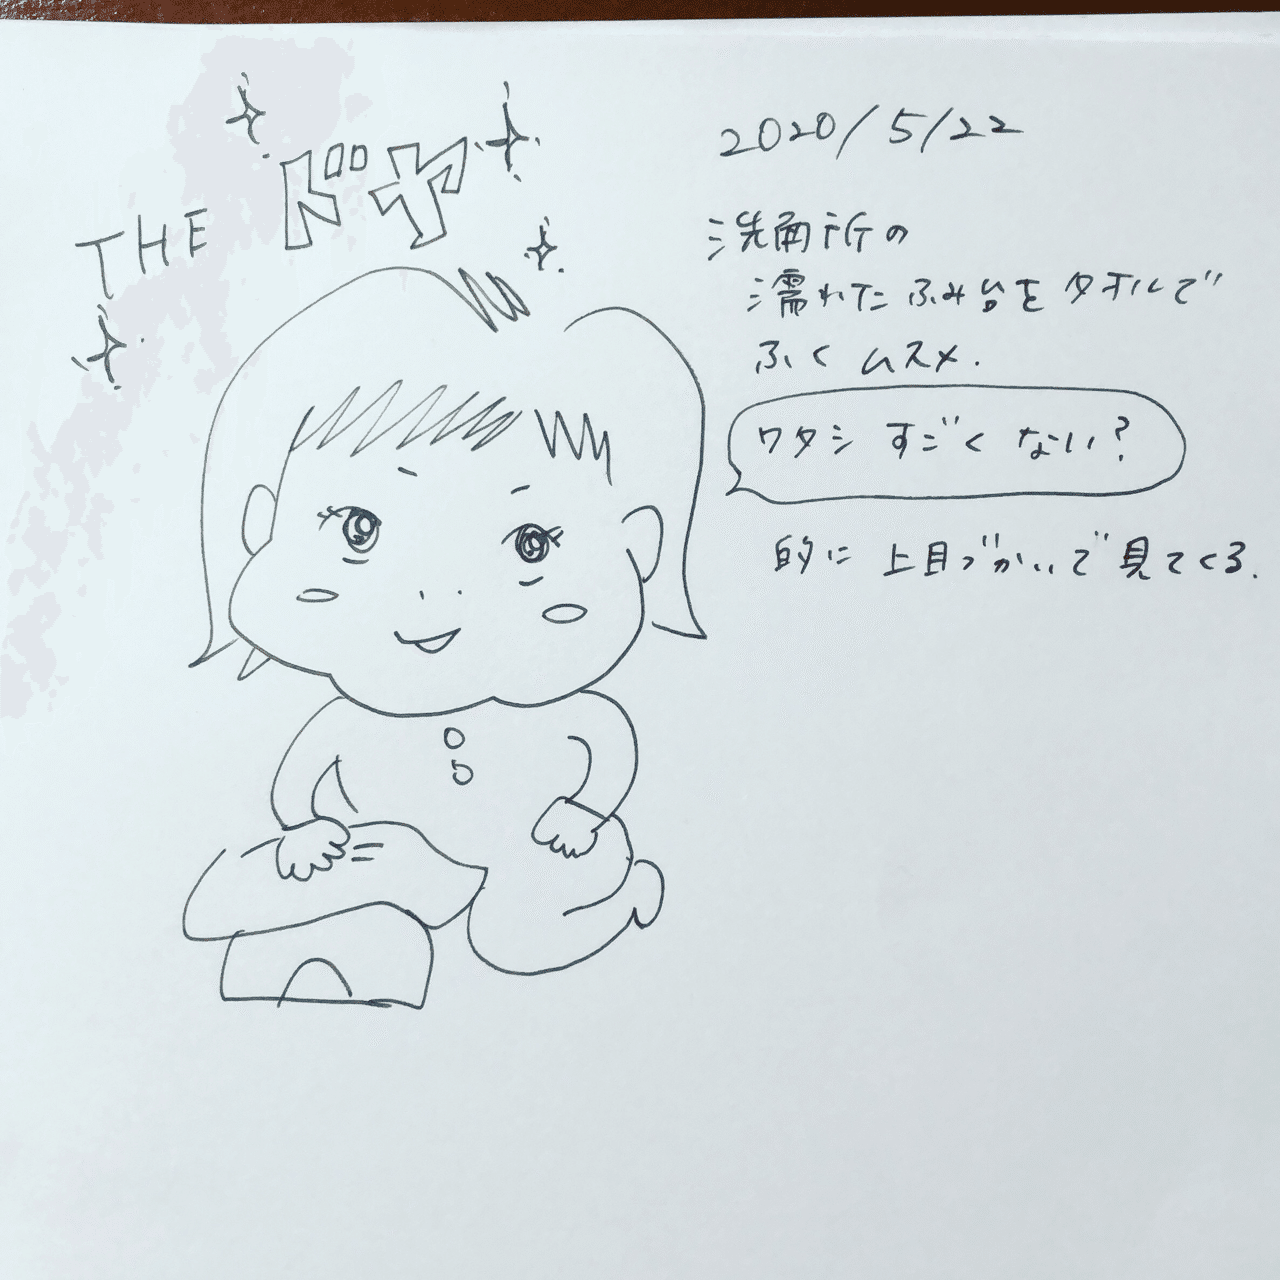 THE ドヤ
2020/5/22
洗面所の
濡れたふみ台をタオルで
ふくムスメ.
ワタシ すごくない?
的に上目づかいで見てくる.